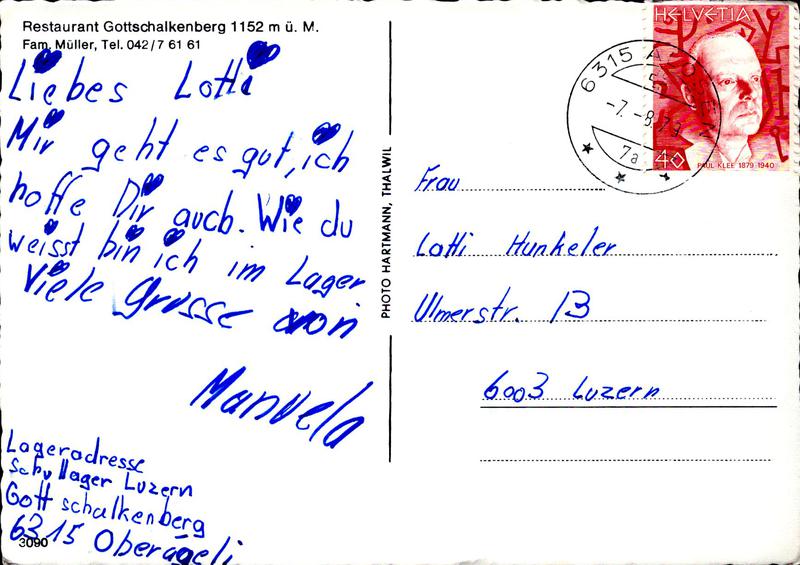 Restaurant Gottschalkenberg 1152 m ü. M.
Fam. Müller, Tel. 042/7 61 61
Liebes Lotti
Mir geht es gut, ich
hoffe Dir auch. Wie du
weisst bin ich im Lager
Viele Grüsse von
Manuela
Lageradresse
Schullager Luzern
Gottschalkenberg
6315 Oberägeli
3090
PHOTO HARTMANN, THALWIL
HELVETIA
40
PAUL KLEE 1879-1940
6315
-7.-8.79
7a
Frau
Lotti Hunkeler
Ulmerstr. 13
6003 Luzern